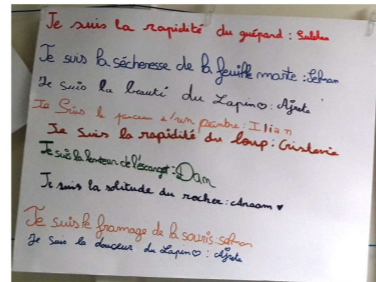 Je suis la rapidité du guépard : Sultan
Je suis la sécheresse de la feuille morte : Selman
Je suis la beauté du Lapin♡ : Ajrola
Je Suis le pinceau d'un peintre : Ilian
Je Suis la rapidité du loup : Cristovia
Je suis la lenteur de l'escargot : Dam
Je suis la solitude du rocher : Anaam ♥
Je suis le framage de la souris
Je suis la douceur du Lapin♡ : Ajrola